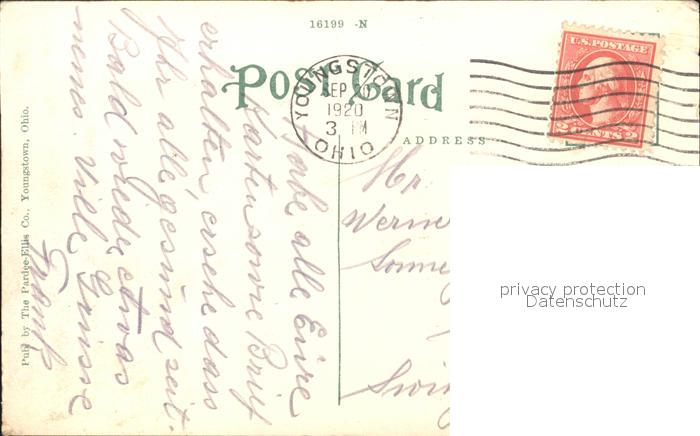 16199 -N
POST Card
YOUNGSTOWN
OHIO
SEP
1920
3 PM
U.S. POSTAGE
2 CENTS 2
ADDRESS
Mr
Werne
Sonne
Swi
privacy protection
Datenschutz
Habe alle Eure
Karten sowie Brief
erhalten, ersehe dass
Ihr alle gesund seit.
Bald wieder etwas
neues. Viele Grüsse
Publ by The Pardee-Ellis Co., Youngstown, Ohio.